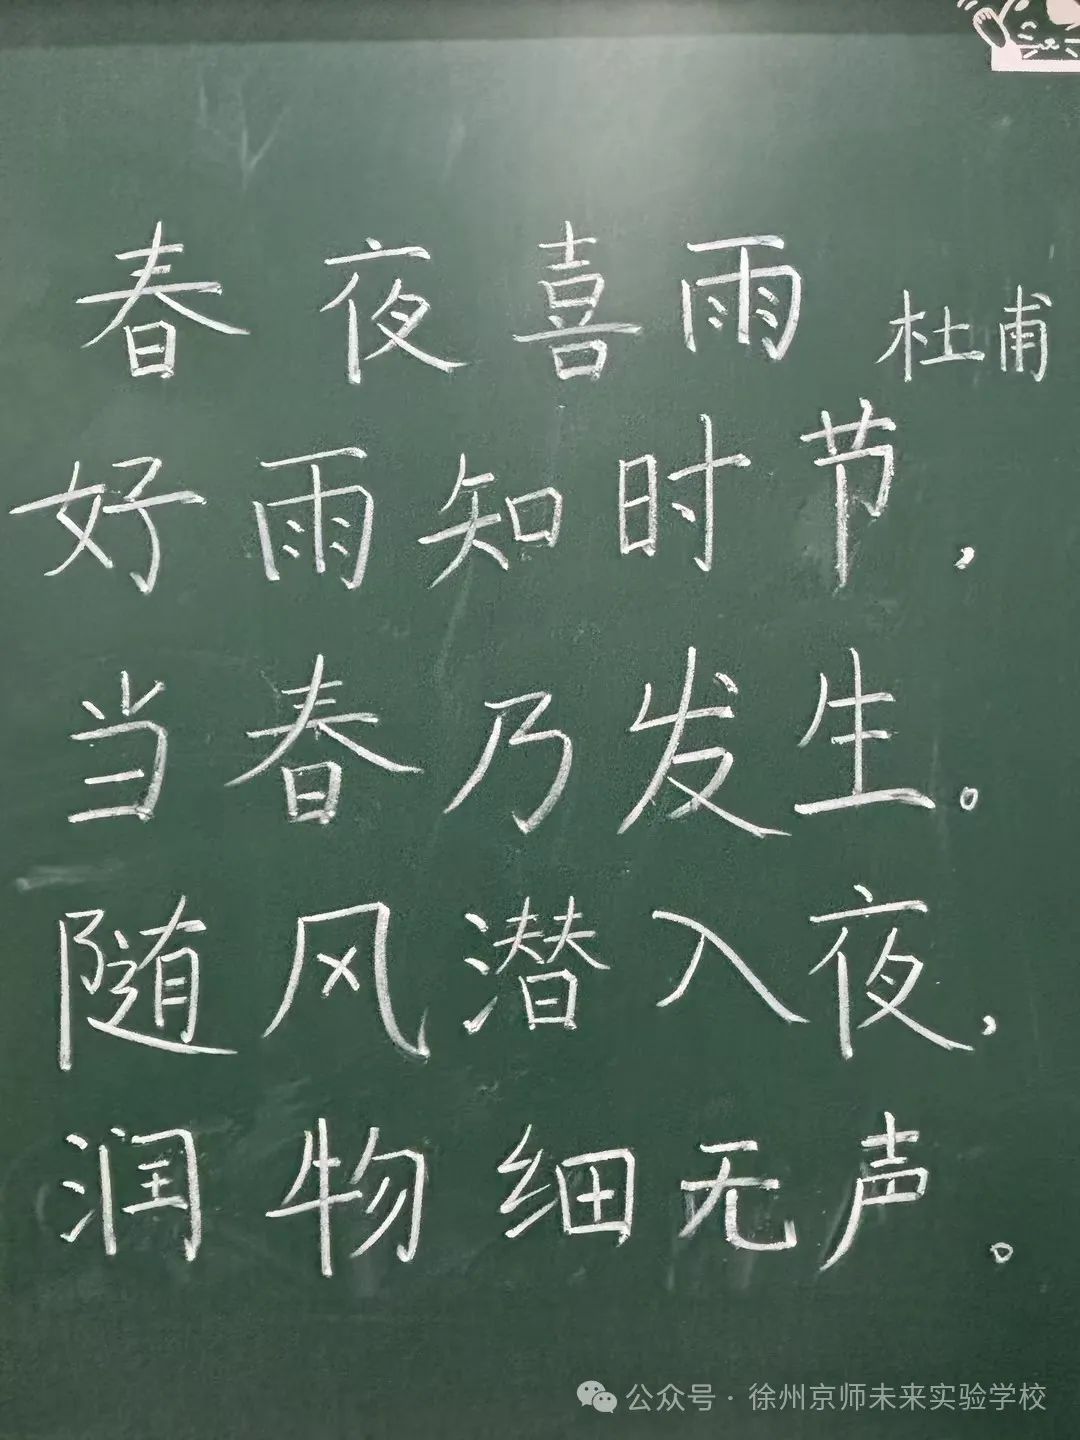 春夜喜雨 杜甫
好雨知时节，
当春乃发生。
随风潜入夜，
润物细无声。
公众号·徐州京师未来实验学校